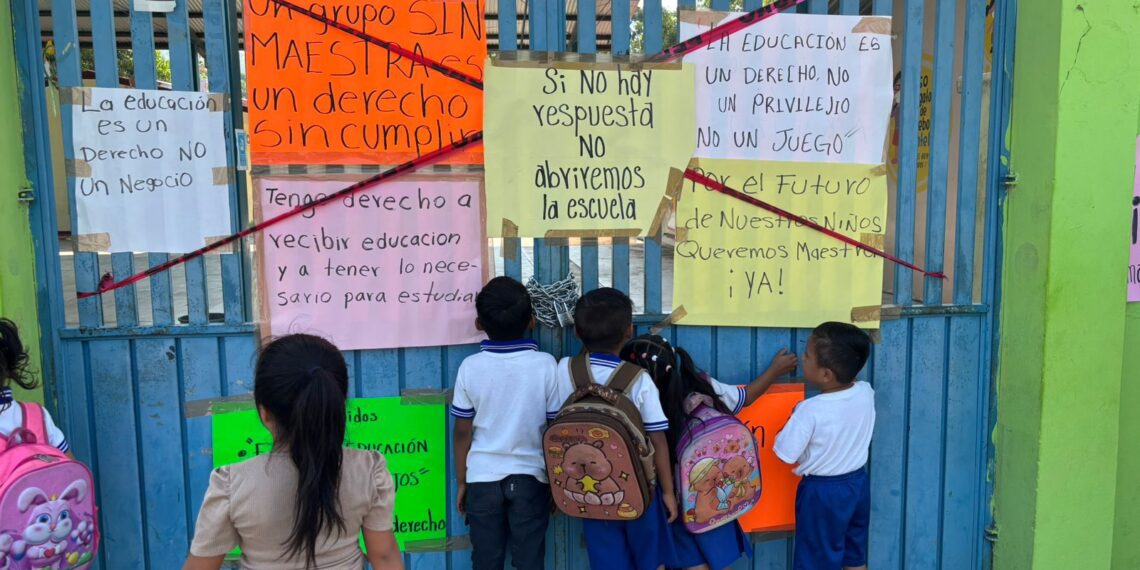 La educación
es un
Derecho NO
un Negocio
un grupo SIN
MAESTRA es
un derecho
sin cumplir
Tengo derecho a
recibir educacion
y a tener lo nece-
sario para estudiar
Si No hay
respuesta
NO
abriremos
la escuela
"LA EDUCACIÓN ES
UN DERECHO, NO
UN PRIVILEJIO
NO UN JUEGO"
Por el Futuro
de Nuestros Niños
Queremos Maestra
¡YA!
derecho